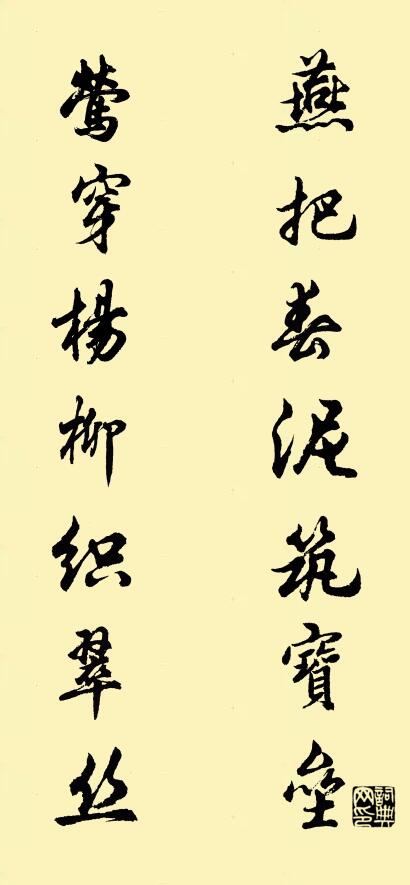 燕把春泥筑寶壘
鶯穿楊柳织翠丝
詞典网印